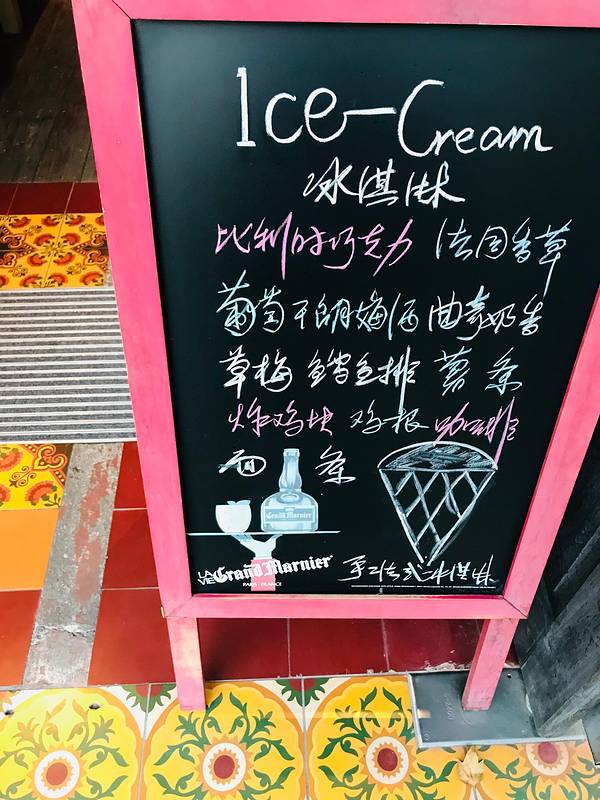 Ice-Cream
冰淇淋
比利时巧克力 法国香草
葡萄干朗姆酒 曲奇奶香
草梅 鳕鱼排 薯条
炸鸡块 鸡根 咖啡
面条
Grand Marnier
LA VIE Grand Marnier
PARIS - FRANCE
手工法式冰淇淋